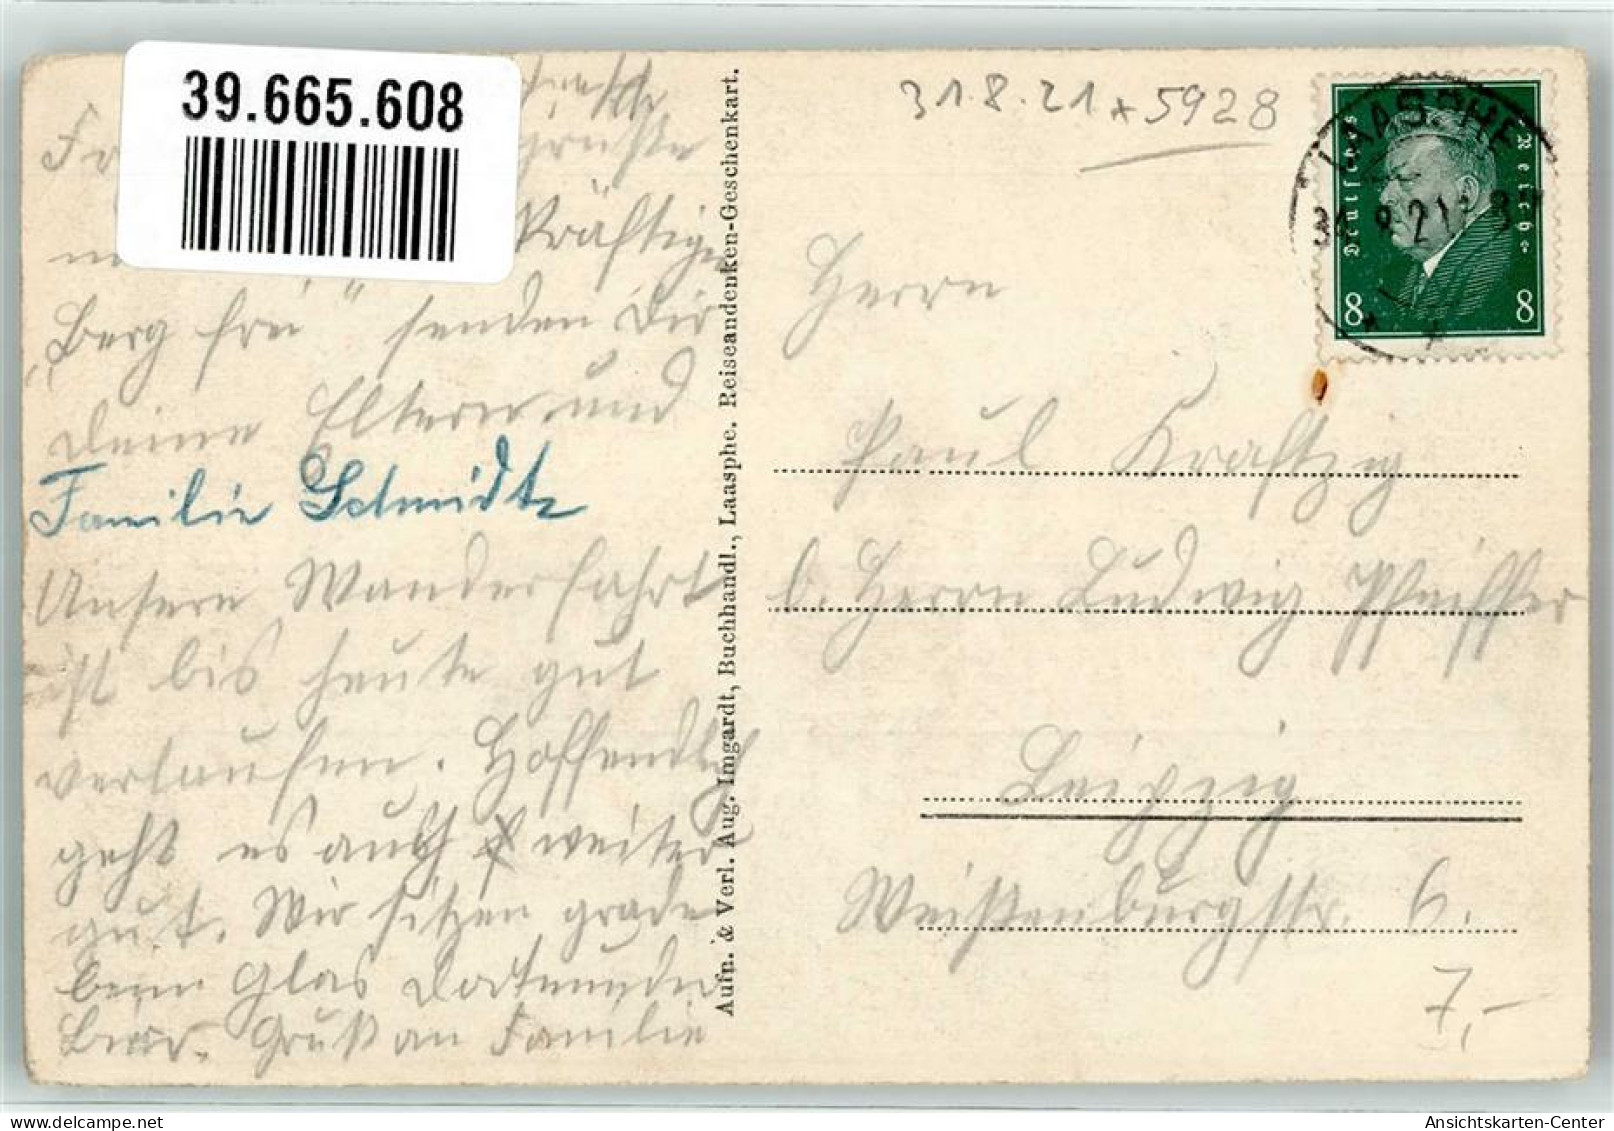 39.665.608
grüße
kräftigen
„Berg frei" senden Dir
Deine Eltern und
Familie Schmidt
Unsere Wanderfahrt
ist bis heute gut
verlaufen. Hoffendlich
geht es auch weiter
gut. Wir sitzen grade
beim Glas Dortmunder
Bier. Gruß an Familie
Aufn. & Verl. Aug. Imgardt, Buchhandl., Laasphe. Reiseandenken-Geschenkart.
31.8.21 * 5928
LAASPHE
Deutsches Reich
8 8
Herrn
Paul Kraftzig
b. Herrn Ludwig Pfeiffer
Leipzig
Weißenburgstr. 6.
7,-
Ansichtskarten-Center